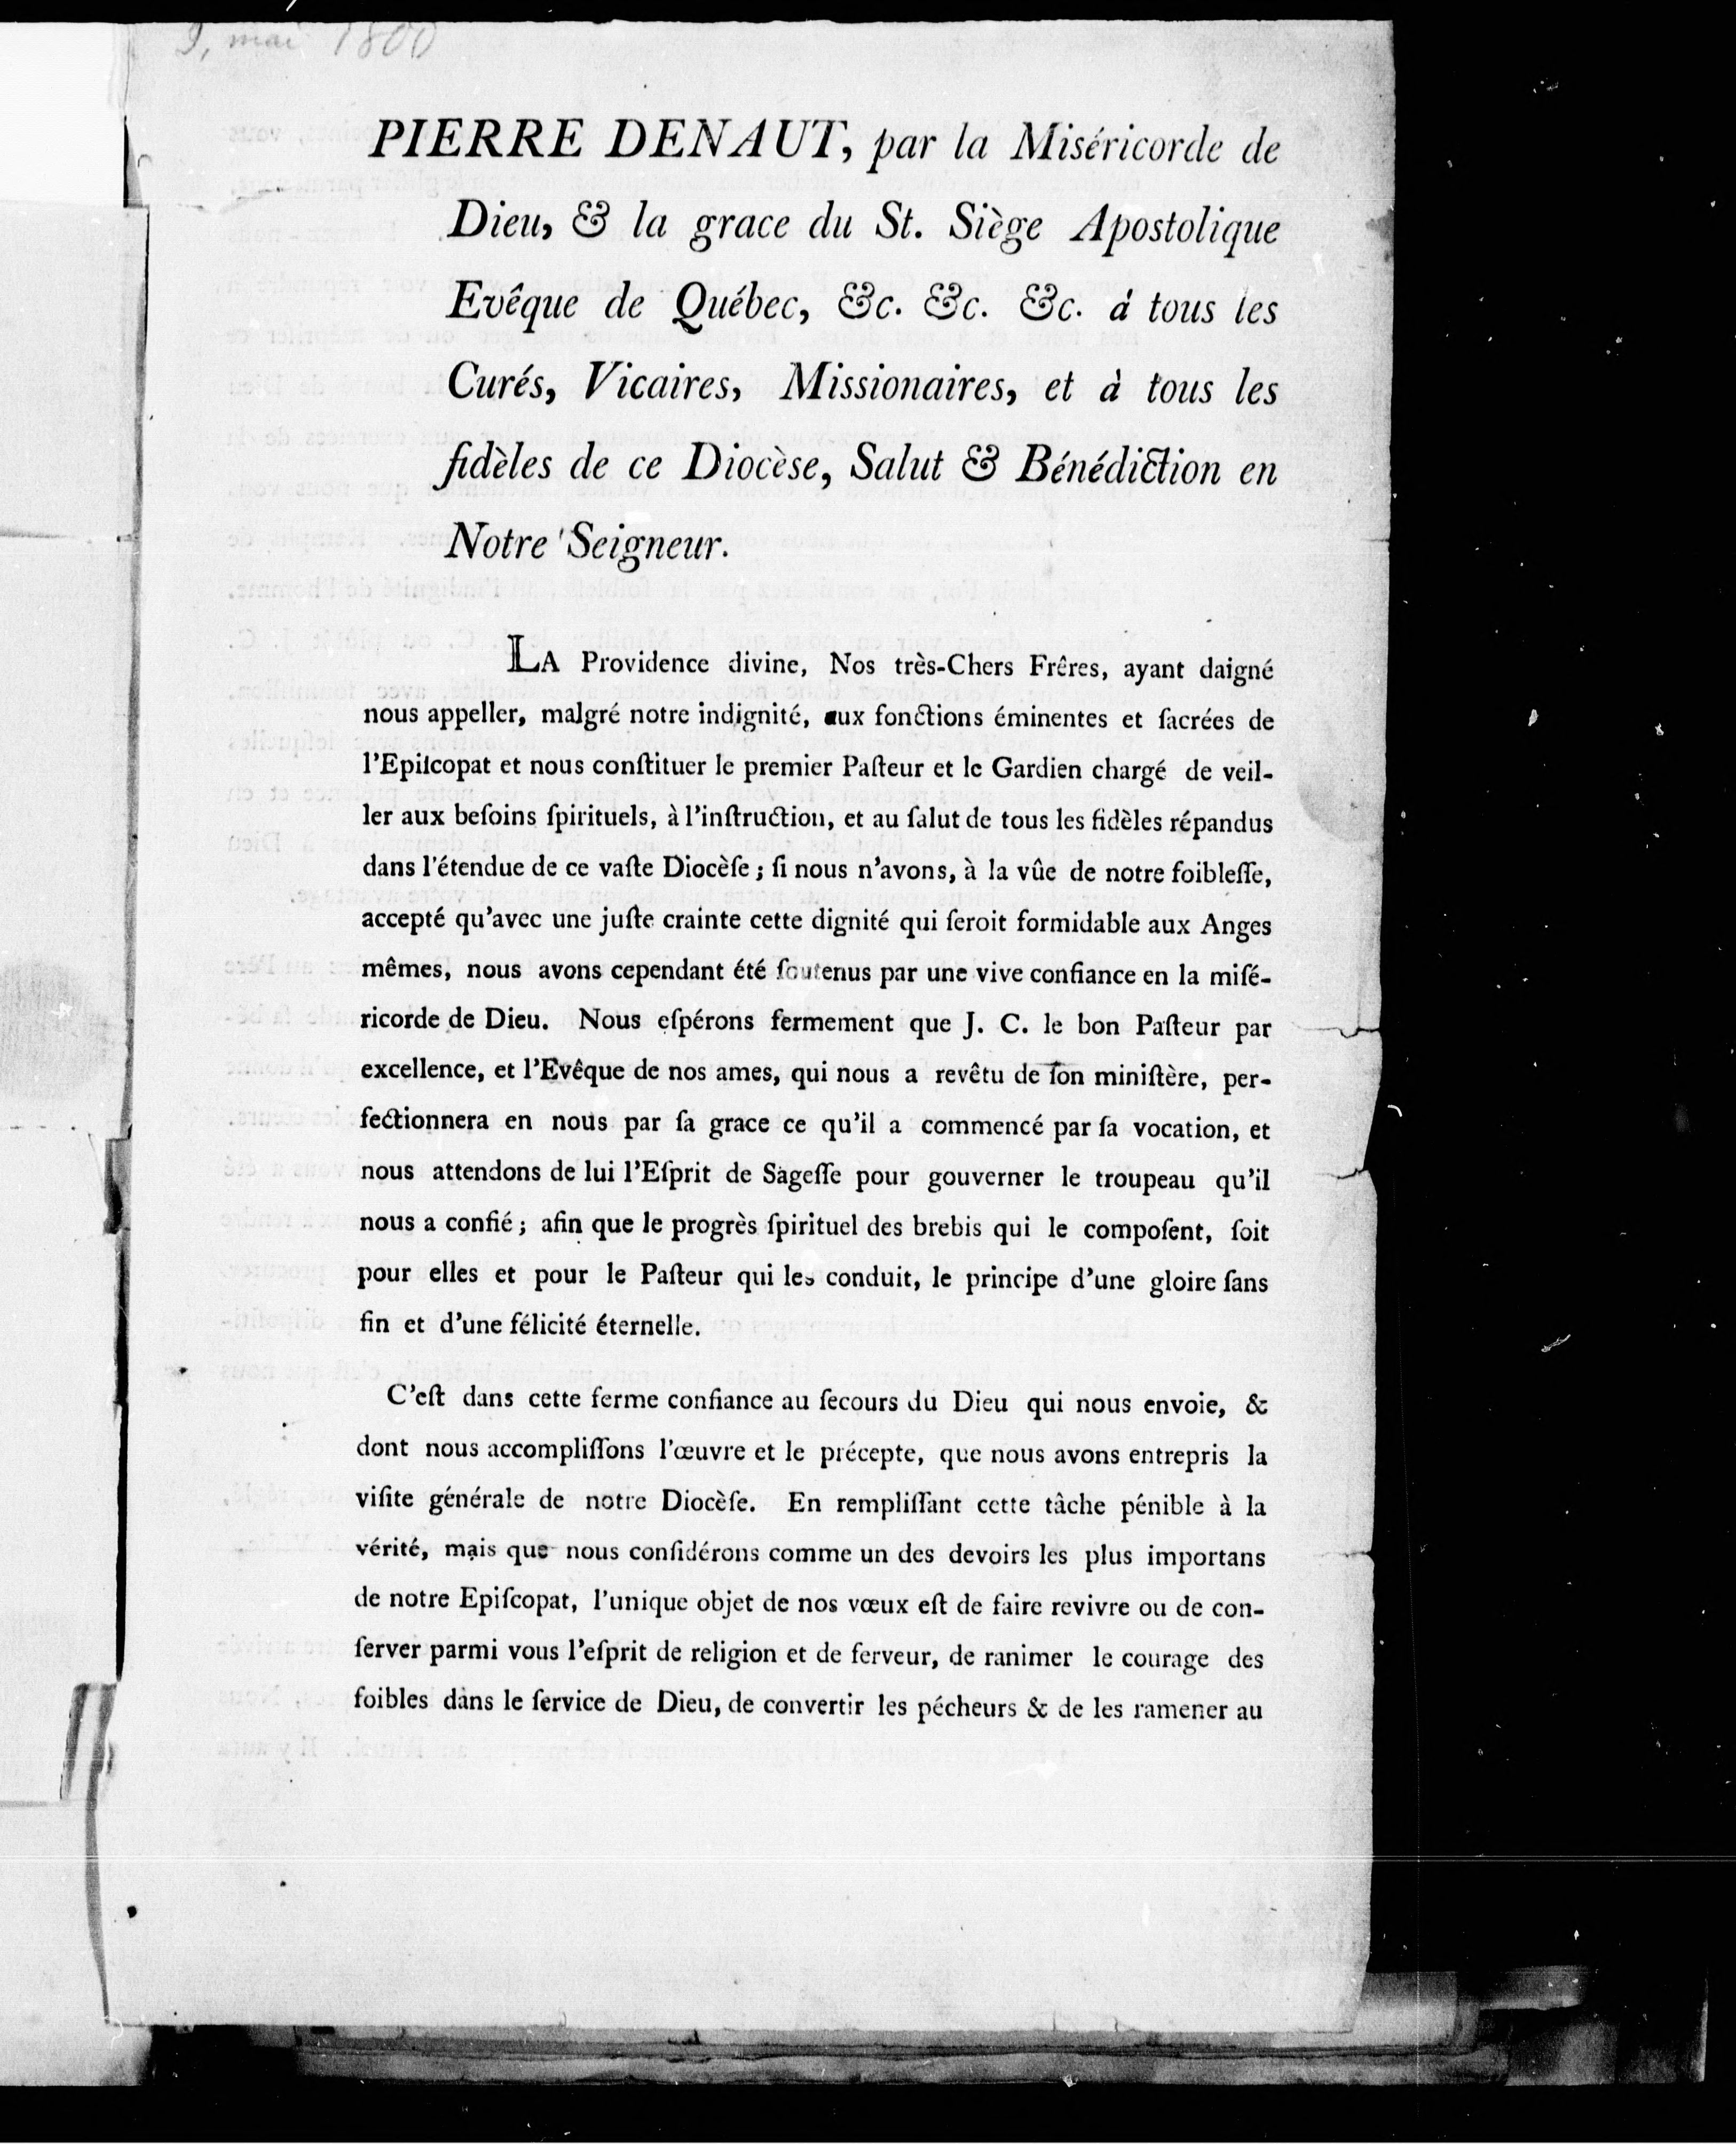 9, mai 1800
PIERRE DENAUT, par la Miséricorde de
Dieu, & la grace du St. Siège Apostolique
Evêque de Québec, &c. &c. &c. à tous les
Curés, Vicaires, Missionaires, et à tous les
fidèles de ce Diocèse, Salut & Bénédiction en
Notre Seigneur.
LA Providence divine, Nos très-Chers Frêres, ayant daigné
nous appeller, malgré notre indignité, aux fonctions éminentes et ſacrées de
l'Epiſcopat et nous conſtituer le premier Paſteur et le Gardien chargé de veil-
ler aux beſoins ſpirituels, à l'inſtruction, et au ſalut de tous les fidèles répandus
dans l'étendue de ce vaſte Diocèſe ; ſi nous n'avons, à la vûe de notre foibleſſe,
accepté qu'avec une juſte crainte cette dignité qui ſeroit formidable aux Anges
mêmes, nous avons cependant été ſoutenus par une vive confiance en la miſé-
ricorde de Dieu. Nous eſpérons fermement que J. C. le bon Paſteur par
excellence, et l'Evêque de nos ames, qui nous a revêtu de ſon miniſtère, per-
fectionnera en nous par ſa grace ce qu'il a commencé par ſa vocation, et
nous attendons de lui l'Eſprit de Sageſſe pour gouverner le troupeau qu'il
nous a confié ; afin que le progrès ſpirituel des brebis qui le compoſent, ſoit
pour elles et pour le Paſteur qui les conduit, le principe d'une gloire ſans
fin et d'une félicité éternelle.
C'eſt dans cette ferme confiance au ſecours du Dieu qui nous envoie, &
dont nous accompliſſons l'œuvre et le précepte, que nous avons entrepris la
viſite générale de notre Diocèſe. En rempliſſant cette tâche pénible à la
vérité, mais que nous conſidérons comme un des devoirs les plus importans
de notre Epiſcopat, l'unique objet de nos vœux eſt de faire revivre ou de con-
ſerver parmi vous l'eſprit de religion et de ferveur, de ranimer le courage des
foibles dans le ſervice de Dieu, de convertir les pécheurs & de les ramener au